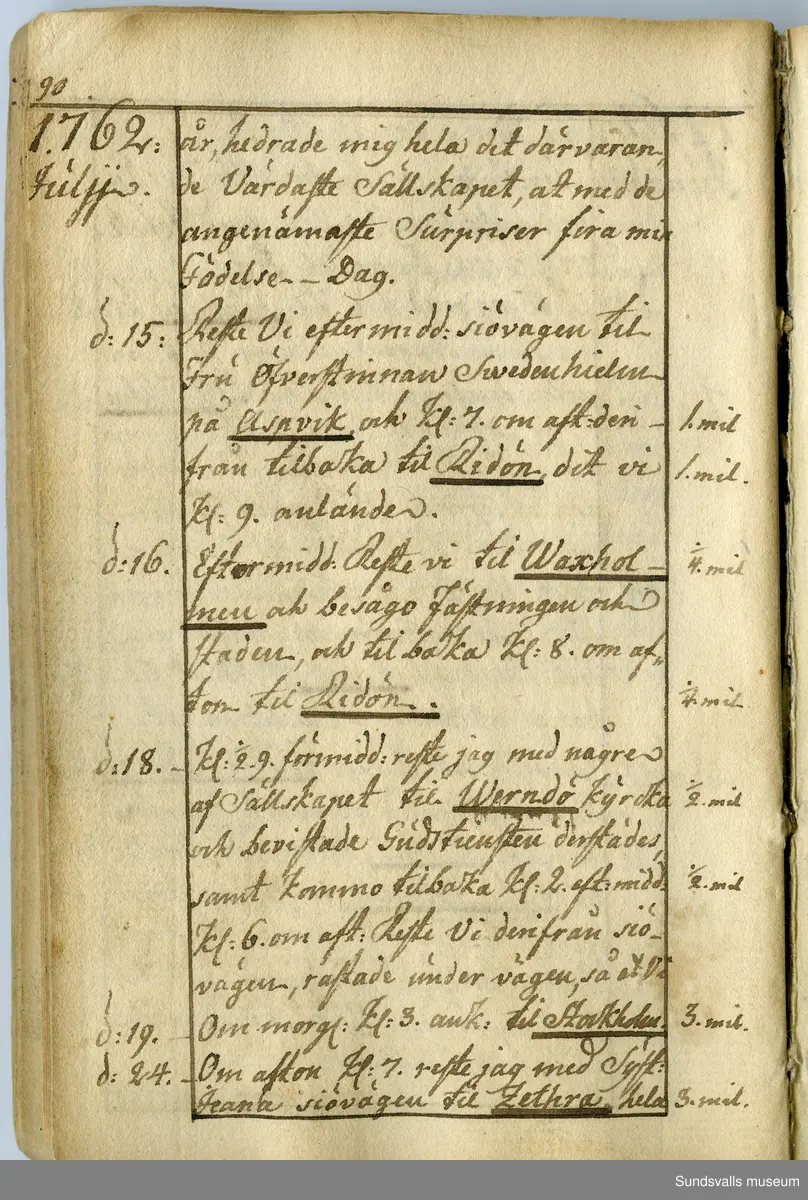 90
1762: år, hedrade mig hela det därvaran„
Julii. de Värdaste Sällskapet, at med de
angenämaste Surpriser fira min
Födelse- Dag.
d: 15: Reste Vi eftermidd: siövägen til
Fru Öfverstinnan Swedenhielm
på Aspvik, och Kl: 7. om aft: deri- 1. mil
från tilbaka til Ridön, dit vi 1. mil.
Kl: 9. anlände.
d: 16. Eftermidd: Reste vi til Waxhol- 1/4. mil
men och besågo Fästningen och
staden, och tilbaka Kl: 8. om af„
ton til Ridön. 1/4. mil
d: 18. - Kl: 1/2 9. förmidd: reste jag med några
af Sällskapet til Werndö kyrcka 1/2. mil
och bevistade Gudstiensten derstädes,
samt kommo tilbaka Kl: 2. eft: midd: 1/2. mil
Kl: 6. om aft: Reste Vi derifrån siö-
vägen, rastade under vägen, så at Vi
d: 19. - Om morg: Kl: 3. ank: til Stockholm. 3. mil.
d: 24. - Om afton Kl: 7. reste jag med Syst:
Jeana siövägen til Zethra, hela 3. mil.
Sundsvalls museum